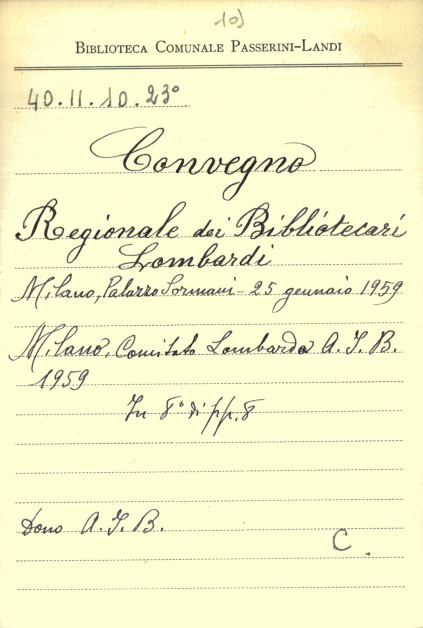 10)
BIBLIOTECA COMUNALE PASSERINI-LANDI
40.II.10.23°
Convegno
Regionale dei Bibliotecari
Lombardi
Milano, Palazzo Sormani - 25 gennaio 1959
Milano, Comitato Lombardo A.I.B.
1959
In 8° di pp. 8
Dono A.I.B.
C.